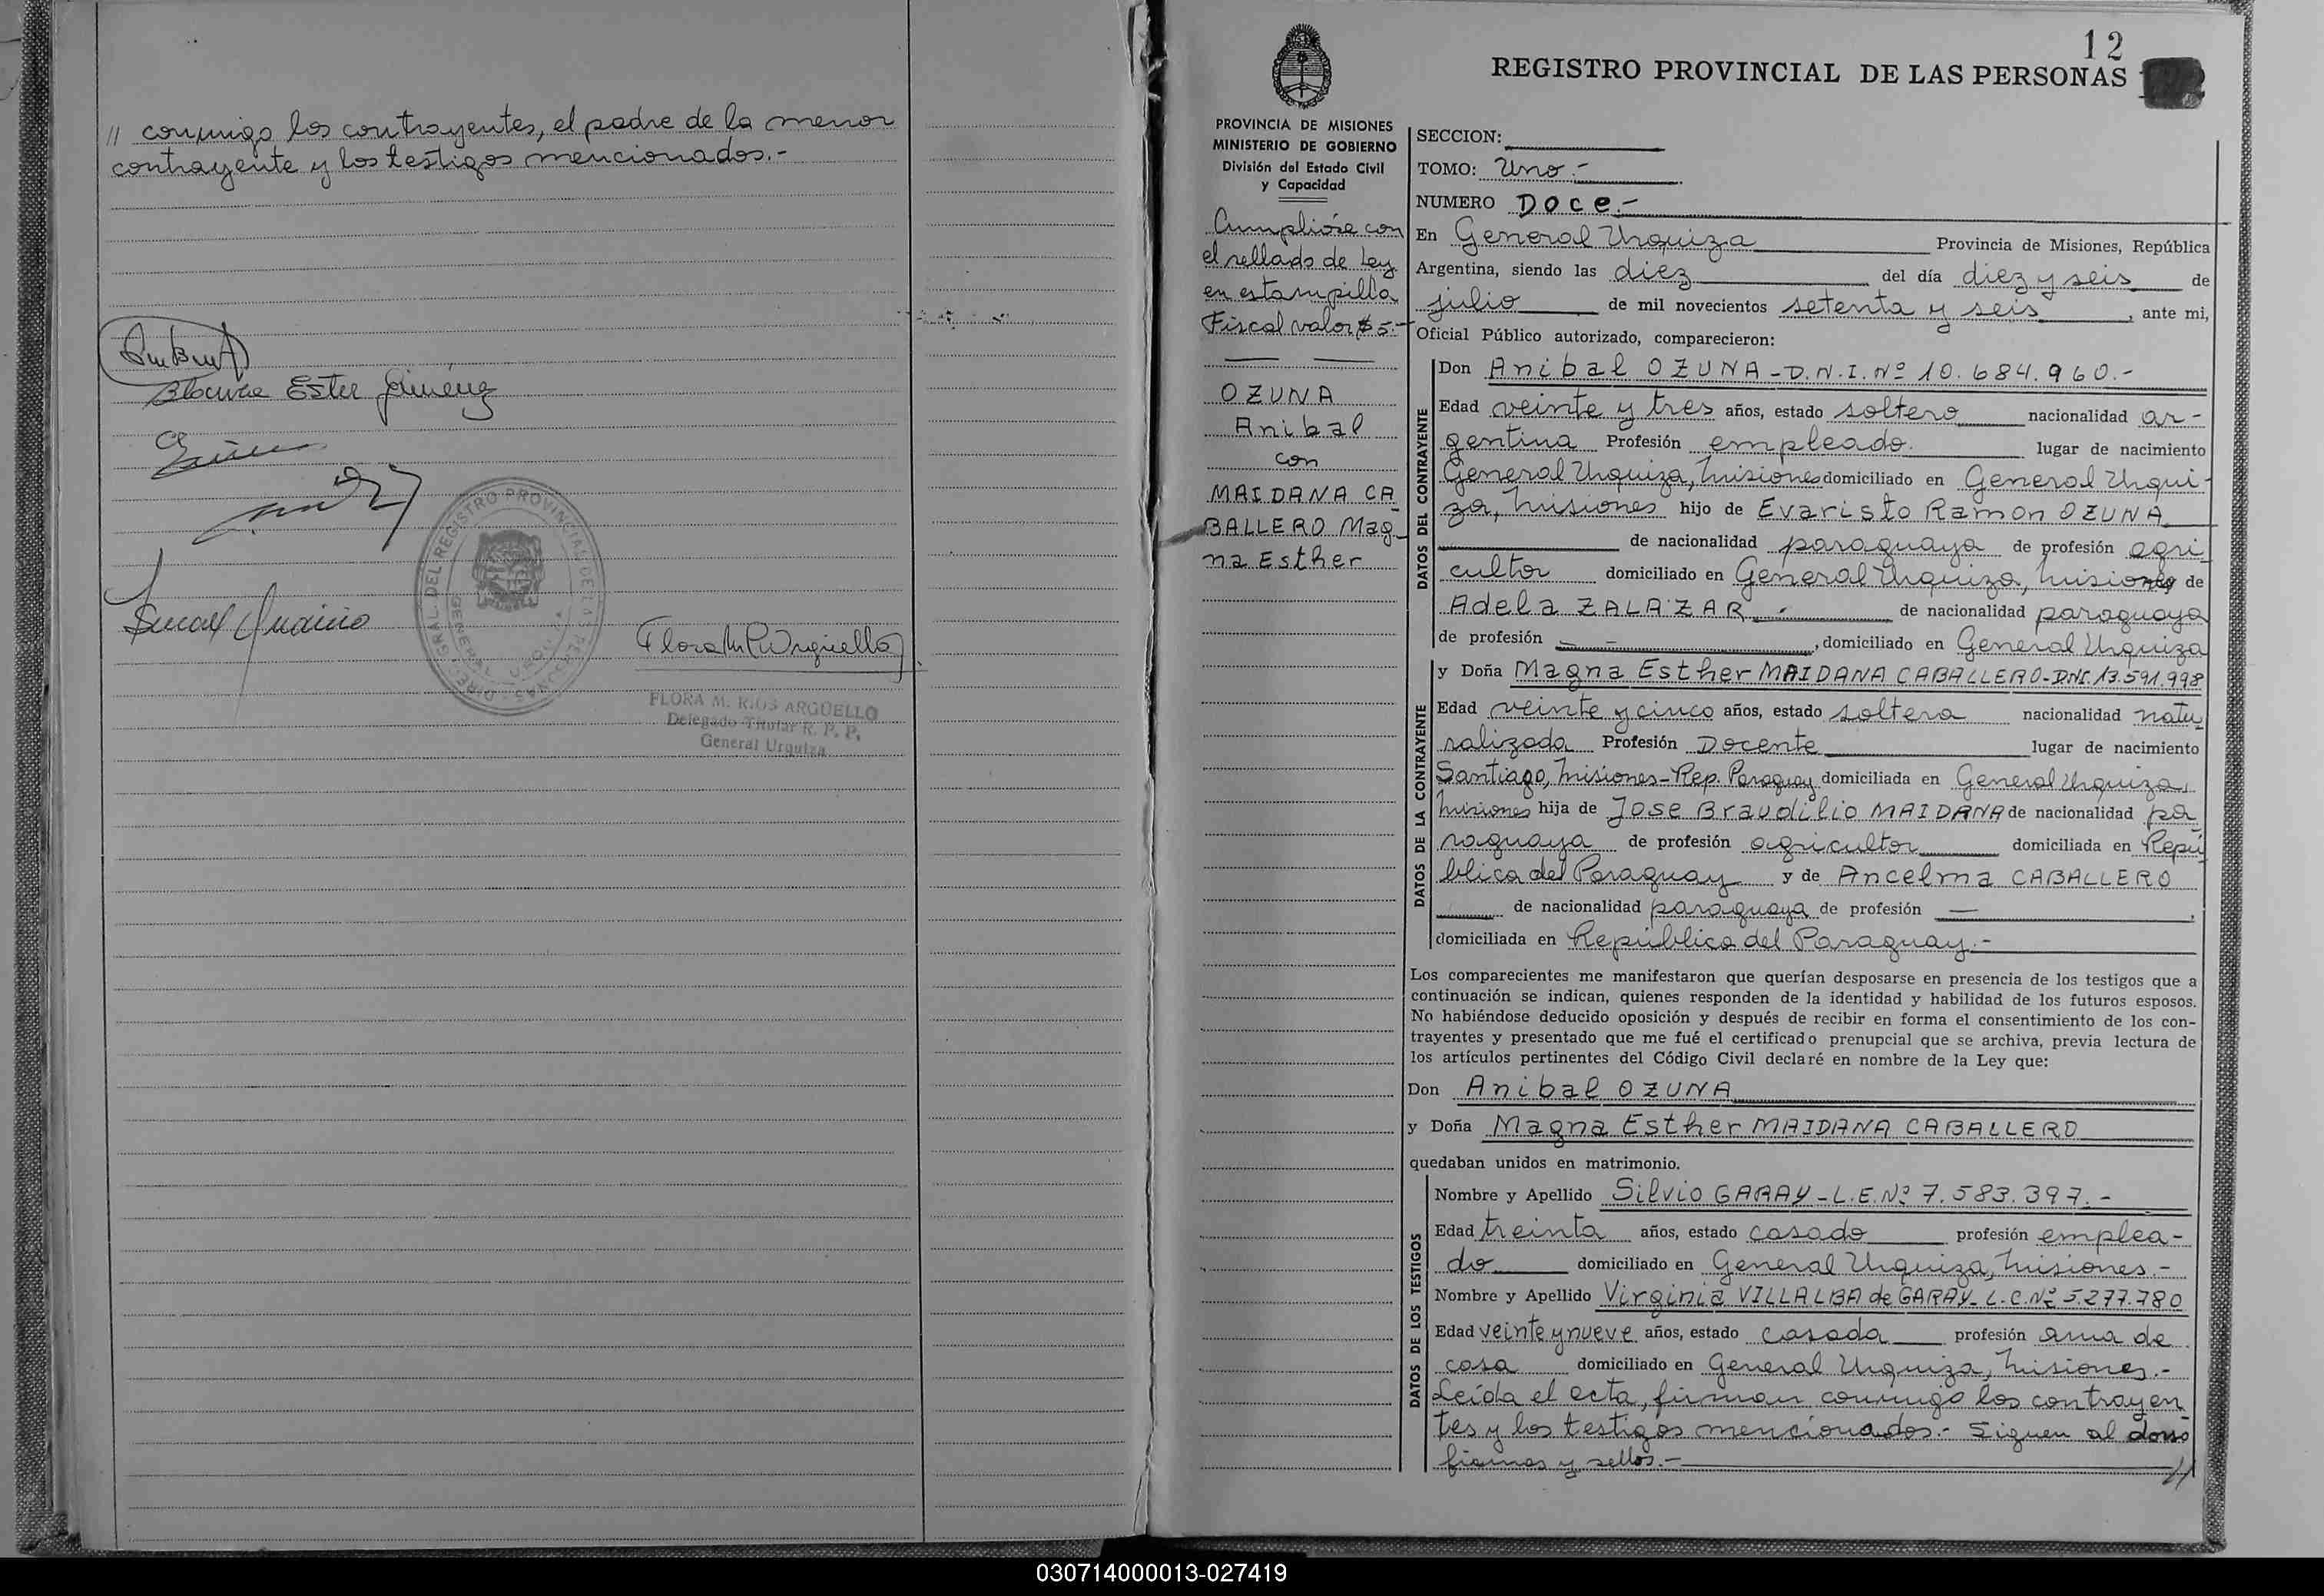 // conmigo los contrayentes, el padre de la menor
contrayente y los testigos mencionados.-
Ester Giménez
DIREC. GRAL. DEL REGISTRO PROVINCIAL DE LAS PERSONAS
GENERAL URQUIZA
FLORA M. RIOS ARGÜELLO
Delegado Titular R. P. P.
General Urquiza
12
REGISTRO PROVINCIAL DE LAS PERSONAS
PROVINCIA DE MISIONES
MINISTERIO DE GOBIERNO
División del Estado Civil
y Capacidad
Cumplióse con
el sellado de Ley
en estampilla
Fiscal valor $ 5.-
OZUNA
Anibal
con
MAIDANA CA
BALLERO Mag
na Esther
SECCION:
TOMO: Uno.-
NUMERO Doce.-
En General Urquiza Provincia de Misiones, República
Argentina, siendo las diez del día diez y seis de
julio de mil novecientos setenta y seis, ante mi,
Oficial Público autorizado, comparecieron:
DATOS DEL CONTRAYENTE
Don Anibal OZUNA - D.N.I. Nº 10.684.960.-
Edad veinte y tres años, estado soltero nacionalidad ar-
gentina Profesión empleado. lugar de nacimiento
General Urquiza, Misiones domiciliado en General Urqui-
za, Misiones hijo de Evaristo Ramon OZUNA
de nacionalidad paraguaya de profesión agri
cultor domiciliado en General Urquiza, Misiones de
Adela ZALAZAR.- de nacionalidad paraguaya
de profesión - , domiciliado en General Urquiza
DATOS DE LA CONTRAYENTE
y Doña Magna Esther MAIDANA CABALLERO-DNI.13.591.998
Edad veinte y cinco años, estado soltera nacionalidad natu
ralizada Profesión Docente lugar de nacimiento
Santiago, Misiones-Rep. Paraguay domiciliada en General Urquiza,
Misiones hija de Jose Braudilio MAIDANA de nacionalidad pa
raguaya de profesión agricultor domiciliada en Repú
blica del Paraguay y de Ancelma CABALLERO
de nacionalidad paraguaya de profesión — ,
domiciliada en República del Paraguay.-
Los comparecientes me manifestaron que querían desposarse en presencia de los testigos que a
continuación se indican, quienes responden de la identidad y habilidad de los futuros esposos.
No habiéndose deducido oposición y después de recibir en forma el consentimiento de los con-
trayentes y presentado que me fué el certificado prenupcial que se archiva, previa lectura de
los artículos pertinentes del Código Civil declaré en nombre de la Ley que:
Don Anibal OZUNA
y Doña Magna Esther MAIDANA CABALLERO
quedaban unidos en matrimonio.
DATOS DE LOS TESTIGOS
Nombre y Apellido Silvio GARAY - L.E. Nº 7.583.397.-
Edad treinta años, estado casado profesión emplea-
do domiciliado en General Urquiza, Misiones.-
Nombre y Apellido Virginia VILLALBA de GARAY - L.C. Nº 5.277.780
Edad veinte y nueve años, estado casada profesión ama de
casa domiciliado en General Urquiza, Misiones.-
Leída el acta, firman conmigo los contrayen
tes y los testigos mencionados.- Siguen al dorso
firmas y sellos.- //
030714000013-027419